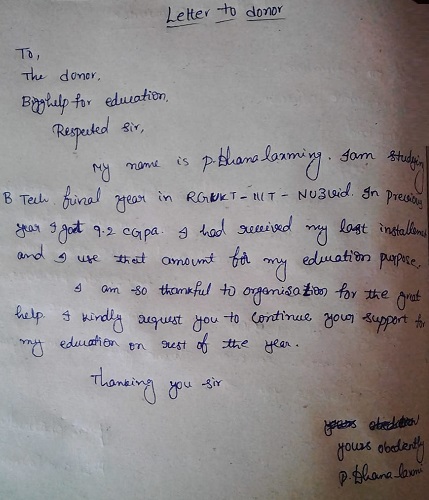 Letter to donor
To,
The donor,
Bigghelp for education,
Respected sir,
My name is P. Dhana laxming. I am studying
B Tech final year in RGUKT - IIIT - NUZvid. In previous
year I got 9.2 CGpa. I had received my last installement
and I use that amount for my education purpose.
I am so thankful to organisation for the great
help. I kindly request you to continue your support for
my education on rest of the year.
Thanking you sir
yours obedently
P. Dhana laxmi